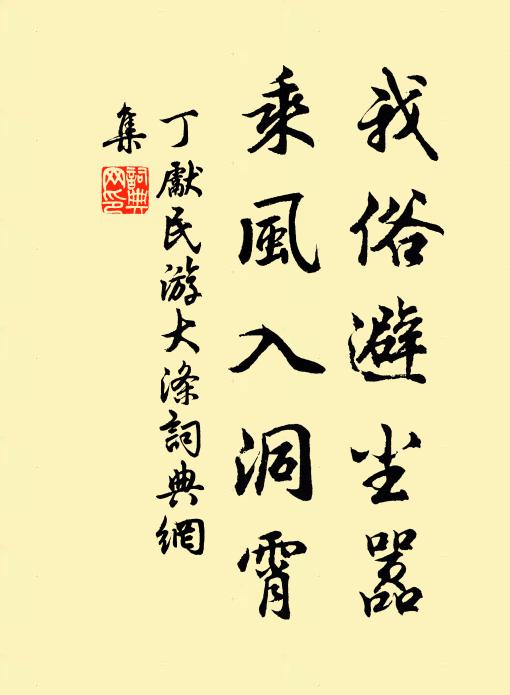 我俗避尘嚣
乘風入洞霄
丁獻民游大滌詞典網
集
詞典
网印